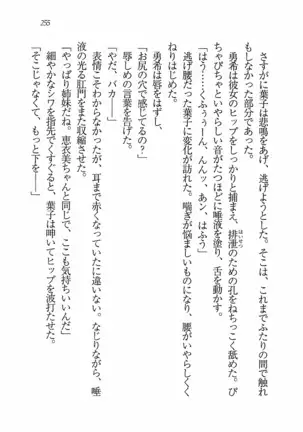 255
さすがに葉子は悲鳴をあげ、逃げようとした。そこは、これまでふたりの間で触れ
もしなかった部分であった。
勇希は彼女のヒップをしっかりと捕まえ、排泄のための孔をねちっこく舐めた。ぴ
ちゃぴちゃといやらしい音がたつほどに唾液を塗り、舌を動かす。
「はう……くふぅぅーん、んんッ、アン、はふう」
逃げ腰だった葉子に変化が訪れた。喘ぎが悩ましいものになり、腰がいやらしくく
ねりはじめた。
勇希は唇をはずし、
「お尻の穴で感じてるの?」
辱しめの言葉を告げた。
「やだ、バカ――」
表情こそわからなかったが、耳まで赤くなっていたに違いない。なじりながら、唾
液の光る肛門をまた収縮させた。
「やっぱり姉妹だね。恵衣美ちゃんと同じで、ここも気持ちいいんだ」
細やかなシワを指先でくすぐると、葉子は呻いてヒップを波打たせた。
「そこじゃなくて、もっと下を――」